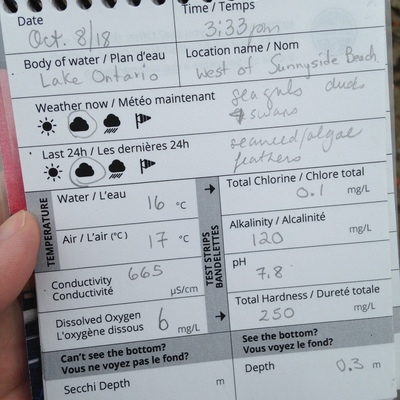 Date
Time / Temps
Oct. 8/18
3:33pm
Body of water / Plan d'eau
Location name / Nom
Lake Ontario
West of Sunnyside Beach
Weather now / Météo maintenant
seagulls ducks
4 swans
Last 24h / Les dernières 24h
seaweed/algae
feathers
TEMPERATURE
Water / L'eau
16 °C
Air / L'air (°C)
17 °C
Conductivity
Conductivité
665
µS/cm
Dissolved Oxygen
L'oxygène dissous
6 mg/L
TEST STRIPS
BANDELETTES
Total Chlorine / Chlore total
0.1 mg/L
Alkalinity / Alcalinité
120 mg/L
pH
7.8
Total Hardness / Dureté totale
250 mg/L
Can't see the bottom?
Vous ne voyez pas le fond?
Secchi Depth m
See the bottom?
Vous voyez le fond?
Depth 0.3 m